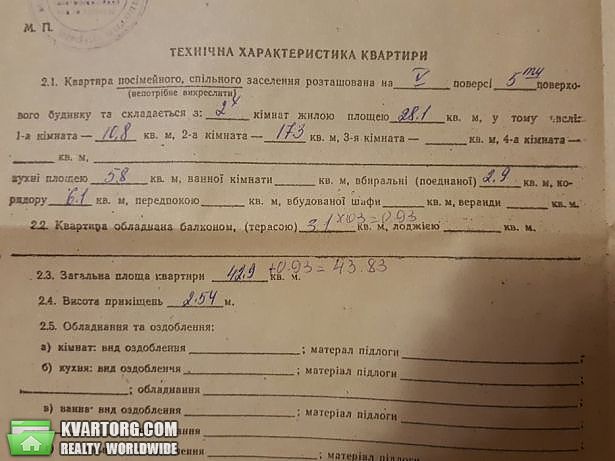 М. П.
ТЕХНІЧНА ХАРАКТЕРИСТИКА КВАРТИРИ
2.1. Квартира посімейного, спільного заселення розташована на V поверсі 5ти поверхо-
(непотрібне викреслити)
вого будинку та складається з: 2х кімнат жилою площею 28.1 кв. м, у тому числі:
1-а кімната — 10,8 кв. м, 2-а кімната — 17.3 кв. м, 3-я кімната — кв. м, 4-а кімната —
кв. м,
кухні площею 5.8 кв. м, ванної кімнати кв. м, вбиральні (поєднаної) 2.9 кв. м, ко-
ридору 6.1 кв. м, передпокою кв. м, вбудованої шафи кв. м, веранди кв. м.
2.2. Квартира обладнана балконом, (терасою) 3.1×0.3=0.93 кв. м, лоджією кв. м.
2.3. Загальна площа квартири 42.9 +0.93 = 43.83 кв. м.
2.4. Висота приміщень 2.54 м.
2.5. Обладнання та оздоблення:
а) кімнат: вид оздоблення ; матерал підлоги
б) кухня: вид оздобленчя ; матеріал підлоги
; обладнання
в) ванна: вид оздоблення ; матеріал підлоги
оздоблення ; матеріал підлоги
KVARTORG.COM
REALTY WORLDWIDE